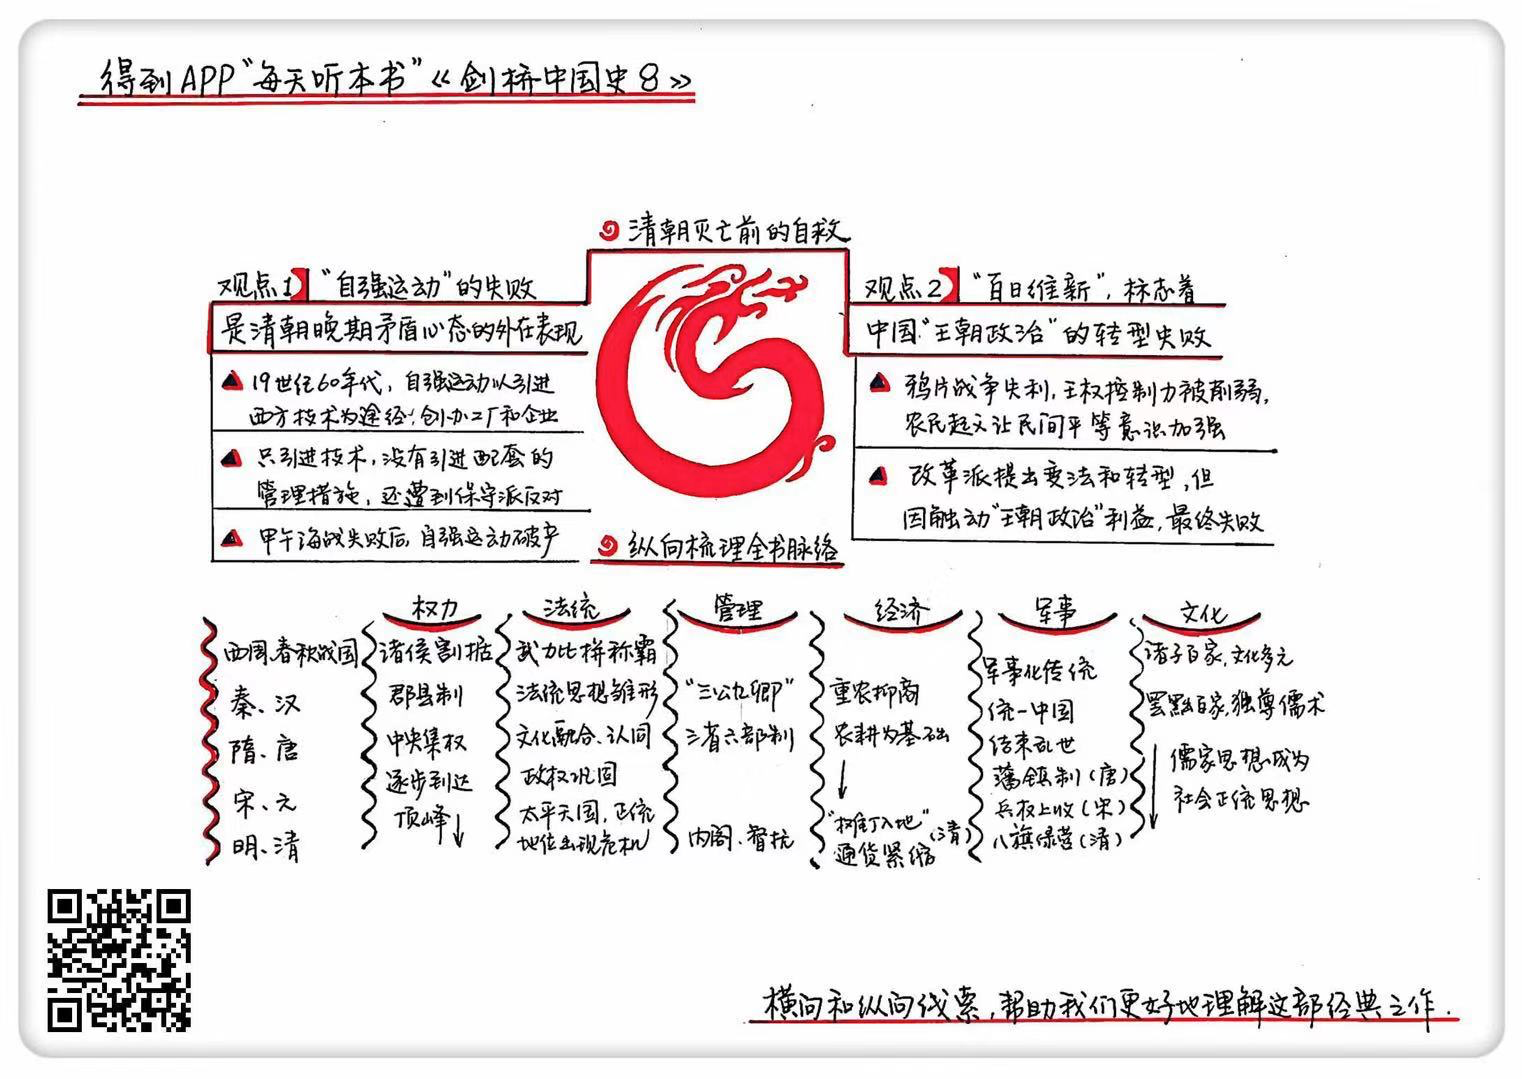 得到APP“每天听本书”《剑桥中国史8》
清朝灭亡前的自救
观点1 “自强运动”的失败
是清朝晚期矛盾心态的外在表现
19世纪60年代，自强运动以引进
西方技术为途径：创办工厂和企业
只引进技术，没有引进配套的
管理措施，还遭到保守派反对
甲午海战失败后，自强运动破产
观点2 “百日维新”，标志着
中国“王朝政治”的转型失败
鸦片战争失利，王权控制力被削弱，
农民起义让民间平等意识加强
改革派提出变法和转型，但
因触动“王朝政治”利益，最终失败
纵向梳理全书脉络
西周、春秋战国
秦、汉
隋、唐
宋、元
明、清
权力
诸侯割据
郡县制
中央集权
逐步到达
顶峰
法统
武力比拼称霸
法统思想雏形
文化融合、认同
政权巩固
太平天国，正统
地位出现危机
管理
“三公九卿”
三省六部制
内阁、督抚
经济
重农抑商
农耕为基础
“摊丁入地”(清)
通货紧缩
军事
军事化传统
统一中国
结束乱世
藩镇制(唐)
兵权上收(宋)
八旗绿营(清)
文化
诸子百家，文化多元
罢黜百家，独尊儒术
儒家思想成为
社会正统思想
横向和纵向线索，帮助我们更好地理解这部经典之作.